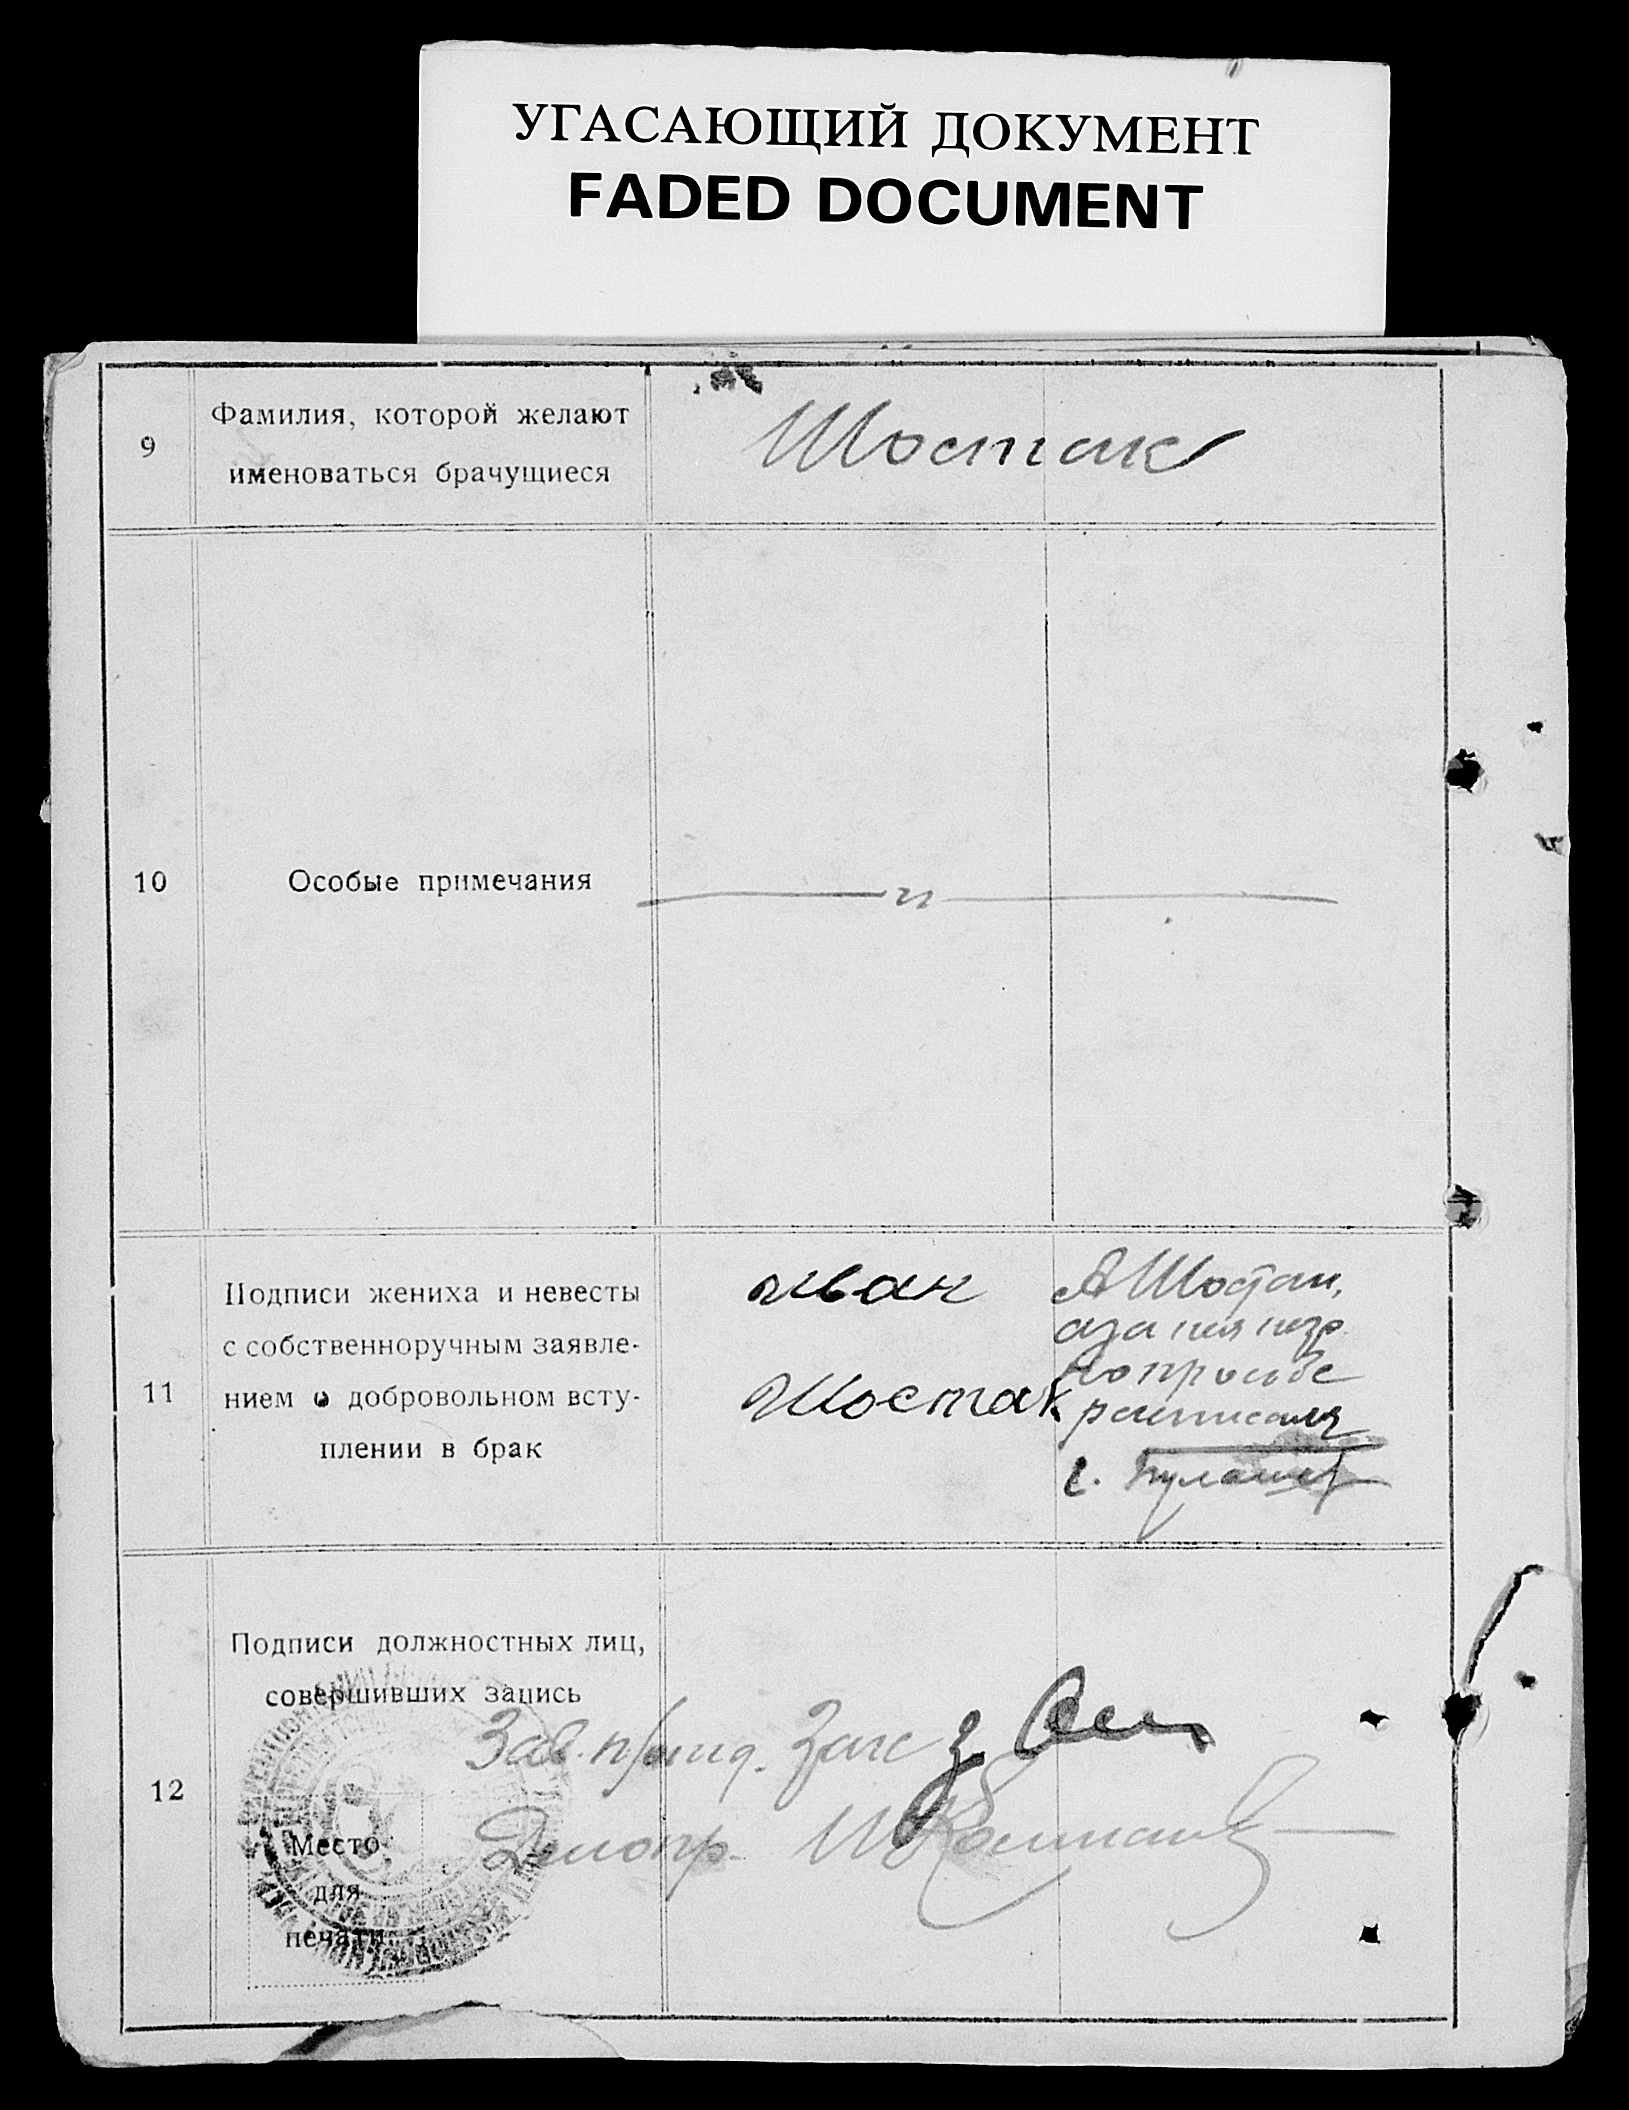 УГАСАЮЩИЙ ДОКУМЕНТ
FADED DOCUMENT
9
Фамилия, которой желают
именоваться брачущиеся
Шостак
10
Особые примечания
— „ —
11
Подписи жениха и невесты
с собственноручным заявле-
нием о добровольном всту-
плении в брак
иван
Шостак
А Шостак,
а за нея негр.
по просьбе
расписался
12
Подписи должностных лиц,
совершивших запись
Зав. п/отд. Загс
Делопр.
Место
для
печати